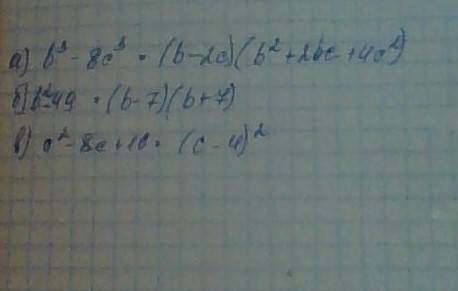 а) b³ - 8c³ = (b-2c)(b²+2bc+4c²)
б) b²-49 = (b-7)(b+7)
в) c²-8c+16 = (c-4)²